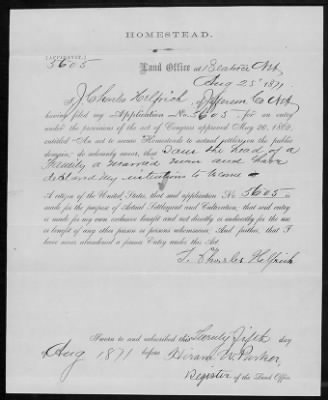 HOMESTEAD.
[AFFIDAVIT.]
5605
Land Office at Beatrice Neb
Aug 25 1871
I, Charles Helfrich, of Jefferson Co Neb
having filed my Application No. 5605, for an entry
under the provisions of the act of Congress approved May 20, 1862,
entitled "An act to secure Homesteads to actual settlers on the public
domain," do solemnly swear, that I am the head of a
Family a married man and have
declared my intentions to become
A citizen of the United States, that said application No. 5605 is
made for the purpose of Actual Settlement and Cultivation, that said entry
is made for my own exclusive benefit and not directly or indirectly for the use
or benefit of any other person or persons whomsoever. And further, that I
have never abandoned a former Entry under this Act.
Charles Helfrich
Sworn to and subscribed this Twenty Fifth day
Aug 1871 before Hiram W. Parker,
Register of the Land Office.